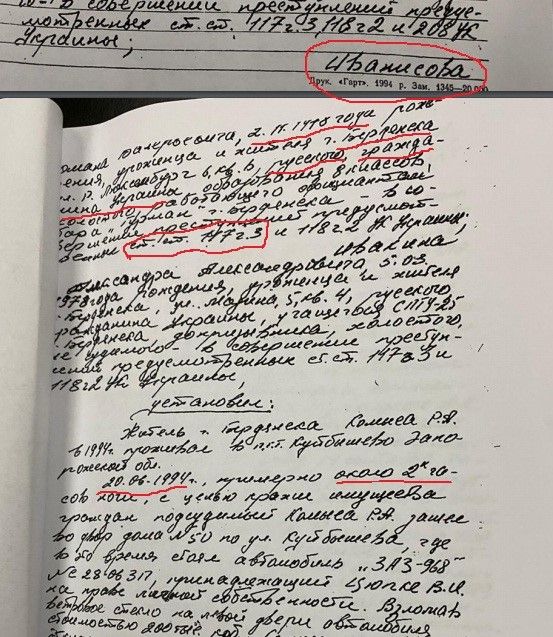 в совершении преступлений предус-
мотренных ст. ст. 117 ч.3, 118 ч2 и 208 УК
Украины;
Иванисова
Друк. «Гарт». 1994 р. Зам. 1345—20.000
Валеросвита, 2. 1976 года рож-
дения, уроженца и жителя г. Бердянска
ул. Р. Люксембург 6, кв. 3, русского, гражда-
нина Украины образования 8 классов,
холостого, работающего официантом
бара г. Бердянска - в со-
вершении преступлений предусмот-
ренных ст. ст. 117 ч. 3 и 118 ч.2 УК Украины;
Ивакина,
Александра Александровита, 5.03.
1978 года рождения, уроженца и жителя
г. Бердянска, ул. 5, кв. 41, русского,
гражданина Украины, учащегося СПТУ-25
г. Бердянска допризывника, холостого,
не судимого - в совершении преступ-
лений предусмотренных ст. ст. 117 ч 3 и
118 ч2 УК Украины,
установил:
Житель г. Бердянска Комыса Р.А.
в 1994г. проживал в п.г.т. Куйбышево Запо
рожской обл.
20.06.1994г., примерно около 2х ча-
сов ночи, с целью кражи имущества
граждан подсудимый Комыса Р.А. зашел
во двор дома №50 по ул. Куйбышева, где
в то время стоял автомобиль "ЗАЗ-968"
№ 28-06 ЗП, принадлежащий Цюпке В.И.
на праве личной собственности. Взломав
ветровое стекло на левой двери автомобиля
стоимостью 200 тыс.